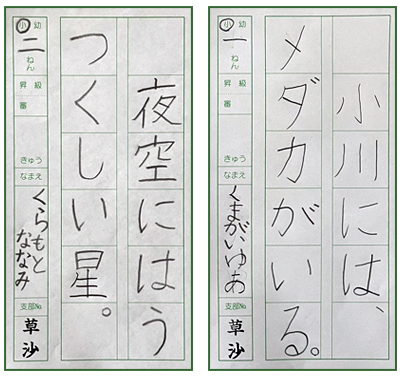 小川には、
メダカがいる。
小 幼
一
ねん
昇級
審
きゅう
なまえ
くまがいゆあ
支部No
草沙
夜空にはう
つくしい星。
小 幼
二
ねん
昇級
審
きゅう
なまえ
くらもと
ななみ
支部No
草沙